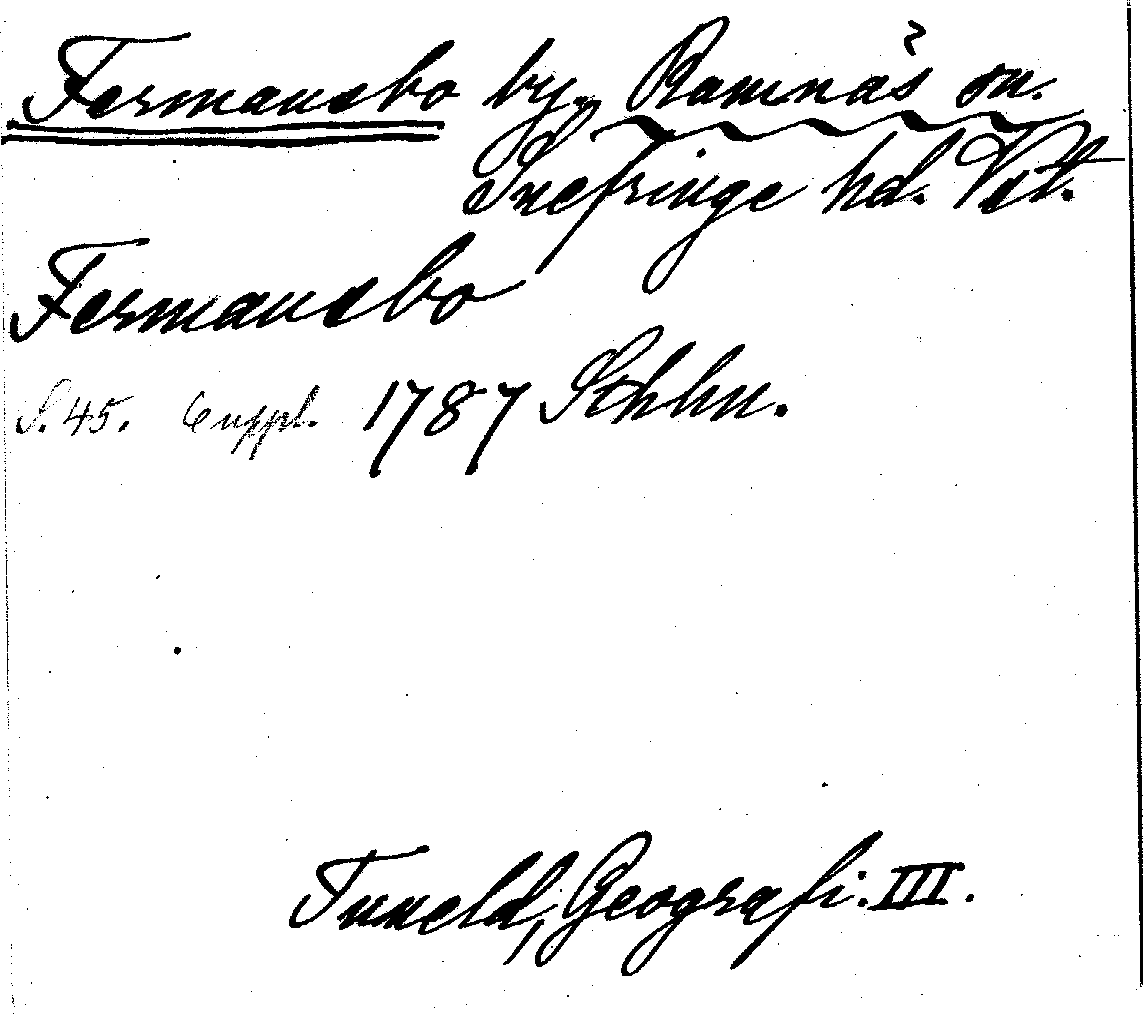 Fermansbo by, Ramnäs sn.
Snefringe hd. Vstl.
Fermansbo
S. 45. Suppl. 1787 Sthlm.
Tuneld, Geografi. III.